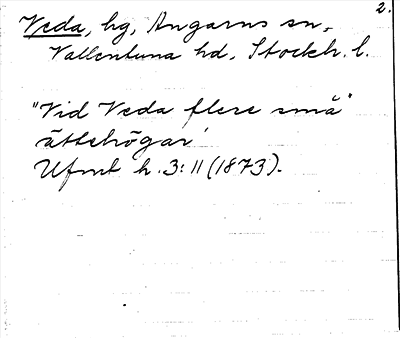 2.
Veda, hg, Angarns sn,
Vallentuna hd, Stockh. l.
"Vid Veda flere små"
ättehögar'
Ufmt h. 3: 11 (1873).